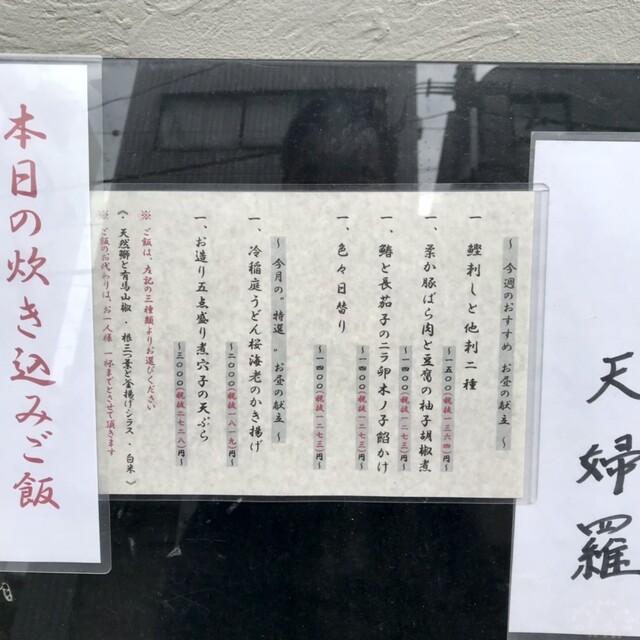 天婦羅
～ 今週のおすすめ お昼の献立 ～
一 鰹刺しと他刺二種
～一五〇〇(税抜 一三六四)円～
一、柔か豚ばら肉と豆腐の柚子胡椒煮
～一四〇〇(税抜 一二七三)円～
一、鰆と長茄子のニラ卵木ノ子餡かけ
～一四〇〇(税抜 一二七三)円～
一、色々日替り
～一四〇〇(税抜 一二七三)円～
～ 今月の〝特選〟 お昼の献立 ～
一、冷稲庭うどん桜海老のかき揚げ
～二〇〇〇(税抜 一八一九)円～
一、お造り五点盛り煮穴子の天ぷら
～三〇〇〇(税抜 二七二八)円～
※ ご飯は、左記の三種類よりお選びください
《 天然鰤と有馬山椒 ・ 根三つ葉と釜揚げシラス ・ 白米 》
※ ご飯のお代わりは、お一人様 一杯までとさせて頂きます
本日の炊き込みご飯